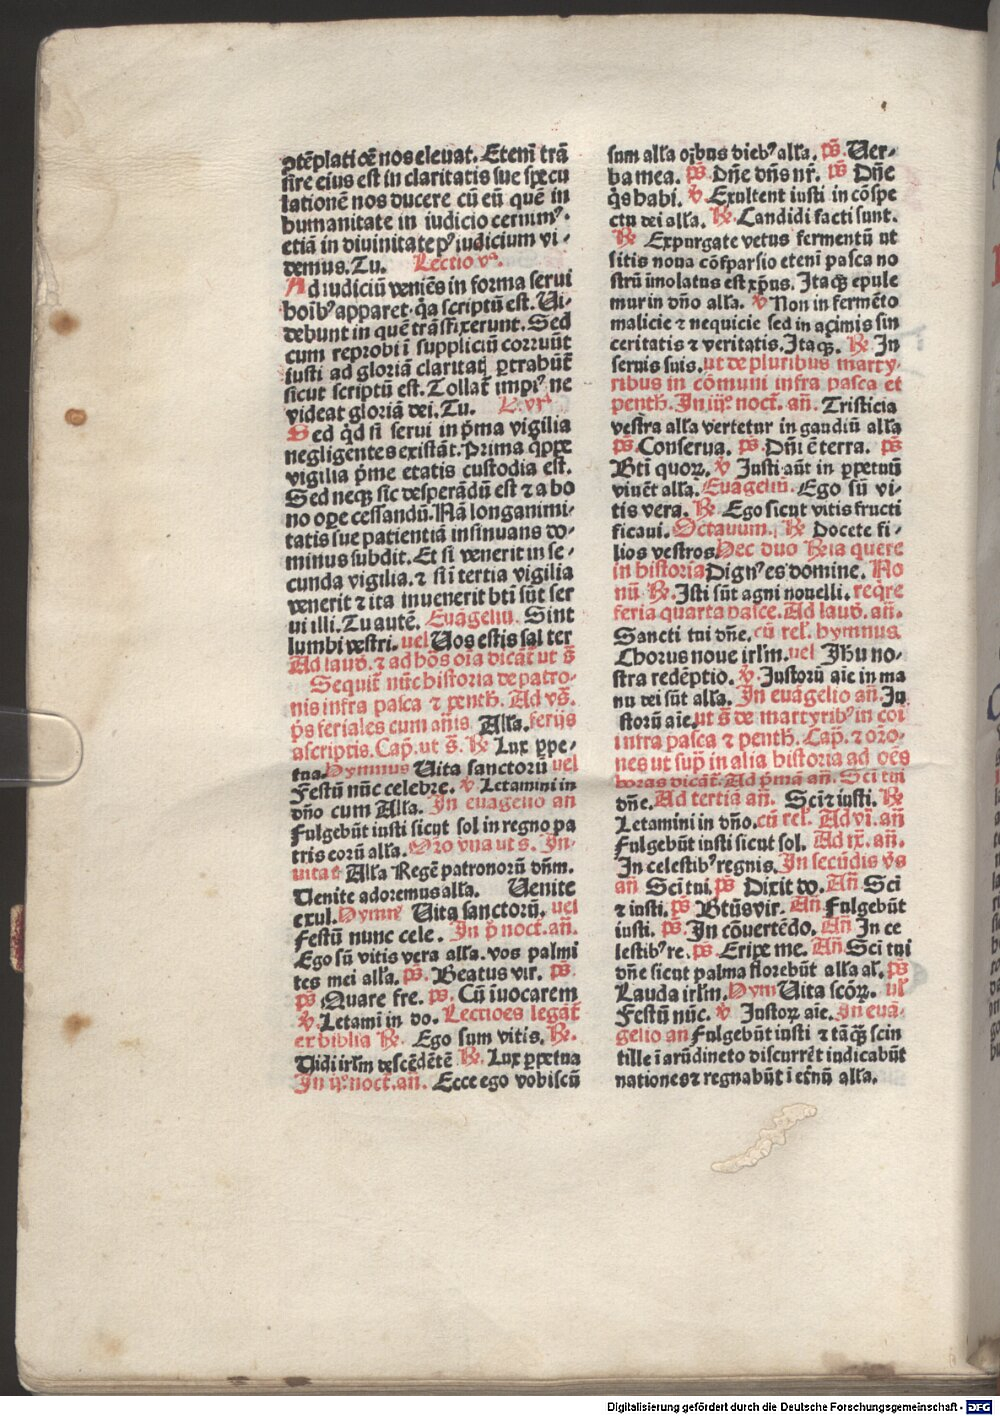 ꝯtēplatiōe nos eleuat. Etenī trā
sire eius est in claritatis sue specu
lationē nos ducere cū eū quē in
humanitate in iudicio cernimꝰ.
etiā in diuinitate pꝰ iudicium vi-
demus. Tu. Lectio vᵃ.
Ad iudiciū veniēs in forma serui
hoibꝰ apparet. q̄a scriptū est. Vi-
debunt in quē trāsfixerunt. Sed
cum reprobi ī suppliciū corruūt
iusti ad gloriā claritatꝭ ꝑtrahūt̄
sicut scriptū est. Tollat̄ impiꝰ ne
videat gloriā dei. Tu. L. vjᵃ
Sed qd̄ si serui in pͥma vigilia
negligentes existāt. Prima qͥppe
vigilia pͥme etatis custodia est.
Sed neqꝫ sic desperādū est ⁊ a bo
no oꝑe cessandū. Nā longanimi-
tatis sue patientiā insinuans do-
minus subdit. Et si venerit in se-
cunda vigilia. ⁊ si ī tertia vigilia
venerit ⁊ ita inuenerit bt̄i sūt ser
ui illi. Tu autē. Euāgeliū. Sint
lumbi vestri. uel Uos estis sal ter
Ad laud̄. ⁊ ad hōs oīa dicāt̄ ut s̄
Sequit̄ nūc historia de patro-
nis infra pasca ⁊ penth̄. Ad vs̄.
ps̄ feriales cum añis Alla. ferijs
ascriptis. Cap̄. ut s̄. ℟ Lux ꝑpe-
tua. Hymnus Uita sanctorū uel
Festū nūc celebre. ℣ Letamini in
dño cum Alla. In euāgelio an
Fulgebūt iusti sicut sol in regno pa
tris eorū alla. Oro vna ut s. In-
uitat̄ Alla Regē patronorū dn̄m.
Uenite adoremus alla. Uenite
exul. Hymnꝰ Uita sanctorū. uel
Festū nunc cele. In pͥ noct̄. añ.
Ego sū vitis vera alla. vos palmi
tes mei alla. ps̄. Beatus vir. ps̄.
ps̄ Quare fre. ps̄. Cū īuocarem
℣. Letamī in do. Lectiōes legāt̄
ex biblia ℟. Ego sum vitis. ℟.
Uidi irl̄m descēdētē ℟. Lux ꝑpetua
In ijͦ. noct̄. añ. Ecce ego vobiscū
sum alla oībus diebꝰ alla. ps̄. Uer-
ba mea. ps̄. Dn̄e dn̄s nr̄. ps̄ Dn̄e
qͥs habi. ℣. Exultent iusti in cōspe
ctu dei alla. ℟. Candidi facti sunt.
℟ Expurgate vetus fermentū ut
sitis noua cōsparsio etenī pasca no
strū īmolatus est xp̄us. Itaqꝫ epule
mur in dño alla. ℣ Non in fermēto
malicie ⁊ nequicie sed in açimis sin
ceritatis ⁊ veritatis. Itaqꝫ. ℟. In
seruis suis. ut de pluribus marty-
ribus in cōmuni infra pasca et
penth̄. In iijͦ noct̄. añ. Tristicia
vestra alla vertetur in gaudiū alla
ps̄. Conserua. ps̄. Dn̄i ē terra. ps̄
Bt̄i quoꝝ. ℣ Justi aūt in ꝑpetuū
viuēt alla. Euāgeliū. Ego sū vi-
tis vera. ℟. Ego sicut vitis fructi
ficaui. Octauum. ℟ Docete fi-
lios vestros. Hec duo ℟ia quere
in historia Dignꝰ es domine. No
nū ℟. Isti sūt agni nouelli. reqͥre
feria quarta pasce. Ad laud̄. añ.
Sancti tui dn̄e. cū rel̄. hymnus
Chorus noue irl̄m. uel Jhū no-
stra redēptio. ℣. Justorū aīe in ma
nu dei sūt alla. In euāgelio añ. Ju
storū aīe. ut s̄ de martyribꝰ in coī
infra pasca ⁊ penth̄. Cap̄. ⁊ oro-
nes ut supͣ in alia historia ad oēs
horas dicāt̄. Ad pͥmā añ. Sci tui
dn̄e. Ad tertiā añ. Sci ⁊ iusti. ℟
Letamini in dño. cū rel̄. Ad vj. añ
Fulgebūt iusti sicut sol. Ad ix. añ.
In celestibꝰ regnis. In secūdis vs̄
añ Sci tui. ps̄ Dixit do. Añ Sci
⁊ iusti. ps̄ Bt̄us vir. Añ Fulgebūt
iusti. ps̄. In cōuertēdo. Añ In ce
lestibꝰ re. ps̄. Eripe me. Añ Sci tui
dn̄e sicut palma florebūt alla al̄. ps̄
Lauda irl̄m. Hym Uita scōꝝ. ul̄
Festū nūc. ℣ Justoꝝ aīe. In euā-
gelio an Fulgebūt iusti ⁊ tāqꝫ scin
tille ī arūdineto discurrēt iudicabūt
nationes ⁊ regnabūt ī et̄nū alla.
Digitalisierung gefördert durch die Deutsche Forschungsgemeinschaft - DFG